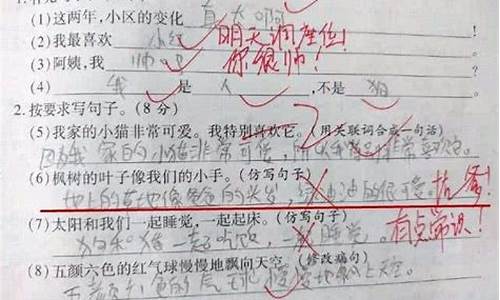 (1)这两年,小区的变化 真大啊
(2)我最喜欢 小红 明天调座位!
(3)阿姨,我 帅吧 你很帅!
(4) 我 是 人 ,不是 狗
2.按要求写句子。(8分)
(5)我家的小猫非常可爱。我特别喜欢它。(用关联词合成一句话)
因为我家的小猫非常可爱,所以我特别非常喜欢它。
(6)枫树的叶子像我们的小手。(仿写句子)
地上的草地像爸爸的头发,绿油油的很可爱。抗争!
(7)太阳和我们一起睡觉,一起起床。(仿写句子)
狗和猪一起吃饭,一起睡觉。 有点常识!
(8)五颜六色的红气球慢慢地飘向天空。(修改病句)
五颜六色的气球慢慢地飘上天空。